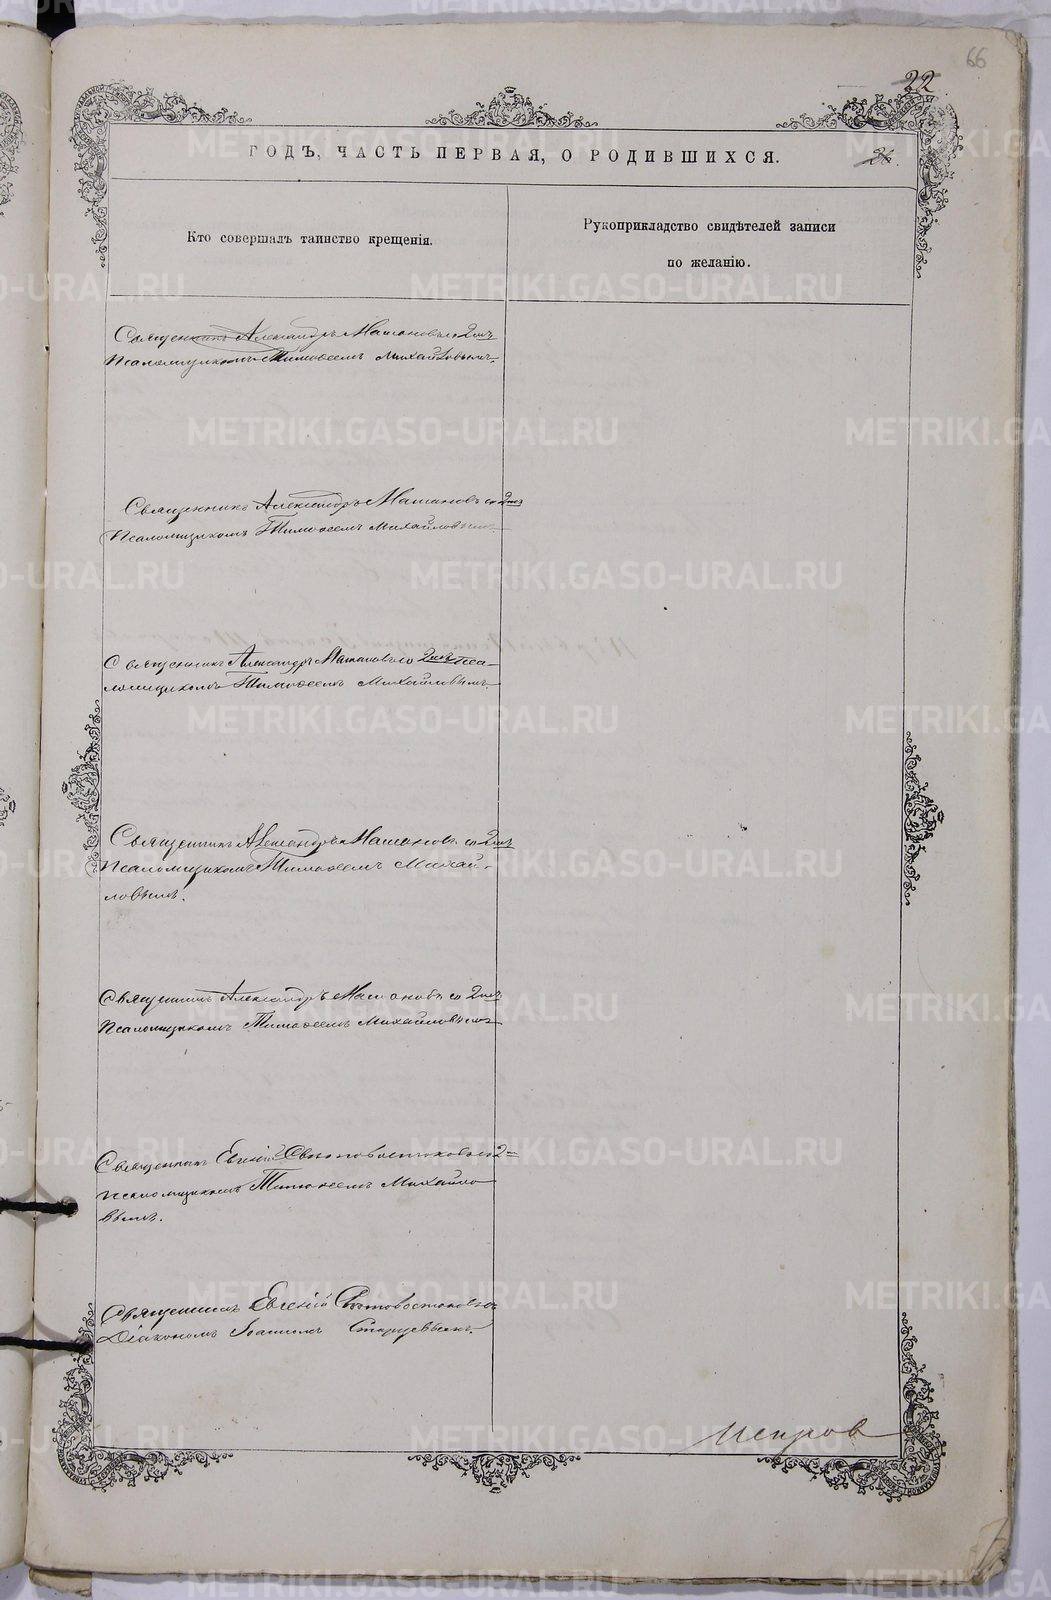 66
22
26.
ГОДЪ, ЧАСТЬ ПЕРВАЯ, О РОДИВШИХСЯ.
Кто совершалъ таинство крещенія.
Рукоприкладство свидѣтелей записи
по желанію.
Священникъ Александръ Машановъ со 2мъ
Псаломщикомъ Тимоѳеемъ Михайловымъ.
Священникъ Александръ Машановъ со 2мъ
Псаломщикомъ Тимоѳеемъ Михайловымъ.
Священникъ Александръ Машановъ со 2мъ Пса-
ломщикомъ Тимоѳеемъ Михайловымъ.
Священникъ Александръ Машановъ со 2мъ
Псаломщикомъ Тимоѳеемъ Михай-
ловымъ.
Священникъ Александръ Машановъ со 2мъ
Псаломщикомъ Тимоѳеемъ Михайловымъ
Священникъ Евгеній со 2
псаломщикомъ Тимоѳеемъ Михайло
вымъ.
Священникъ Евгеній съ
Діакономъ Іоанномъ Старцевымъ.
METRIKI.GASO-URAL.RU